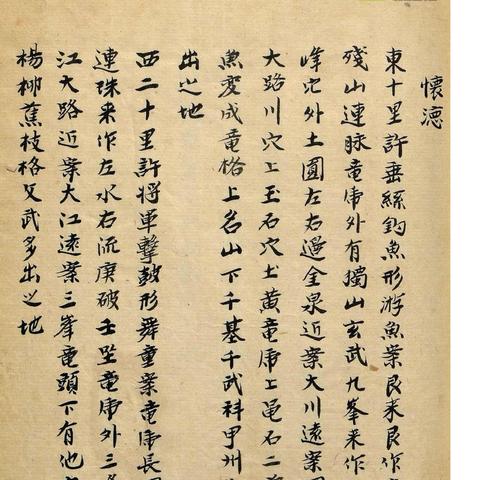 懷德
東十里許垂絲釣魚形游魚案艮来艮作
殘山連脉竜虎外有獨山玄武九峯来作
峰穴外土圓左右邊全泉近案大川遠案
大路川穴上玉石穴土黄竜虎上黽石二
魚変成竜格上名山下千基千武科甲州
出之地
西二十里許将軍擊鼓形舞童案竜虎長
連珠来作左水右流庚破壬坐竜虎外三
江大路近案大江遠案三峯竜頭下有他
楊柳蕉枝格文武多出之地